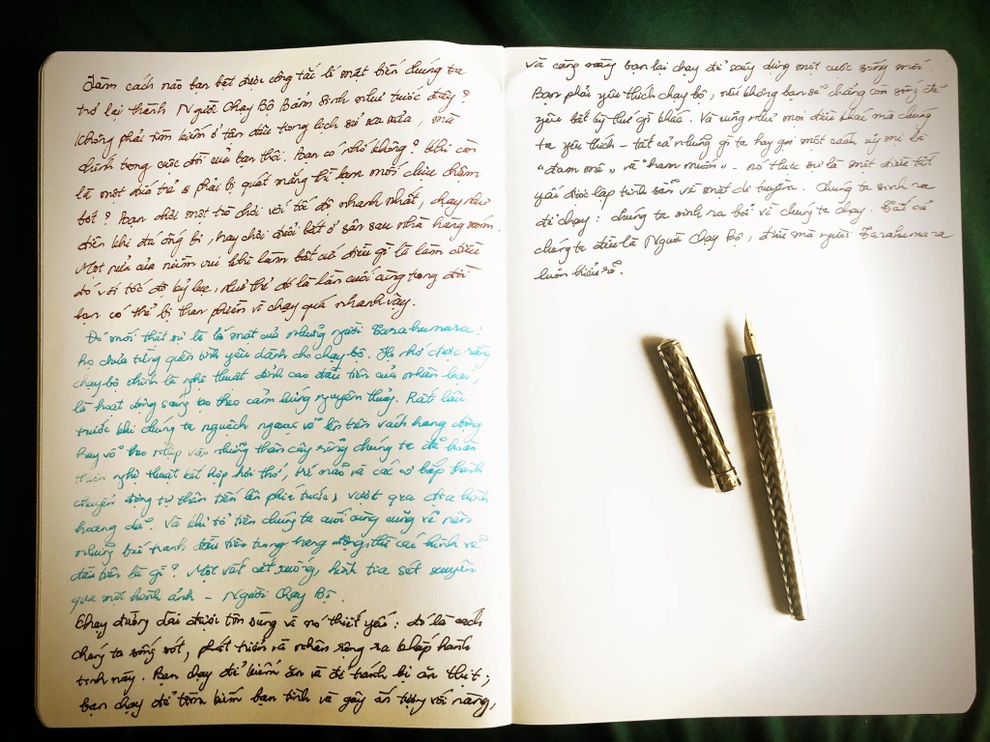 Làm cách nào bạn bật được công tắc bí mật biến chúng ta
trở lại thành Người Chạy Bộ Bẩm Sinh như trước đây?
Không phải tìm kiếm ở tận đâu trong lịch sử xa xưa, mà
chính trong cuộc đời của bạn thôi. Bạn có nhớ không? Khi còn
là một đứa trẻ & phải bị quát mắng thì bạn mới chịu chậm
bớt? Bạn chơi một trò chơi với tốc độ nhanh nhất, chạy như
điên khi đá ống bi, hay chơi đuổi bắt ở sân sau nhà hàng xóm.
Một nửa của niềm vui khi làm bất cứ điều gì là làm điều
đó với tốc độ kỷ lục, như thể đó là lần cuối cùng trong đời
bạn có thể bị than phiền vì chạy quá nhanh vậy.
Đó mới thật sự là bí mật của những người Tarahumara:
họ chưa từng quên tình yêu dành cho chạy bộ. Họ nhớ được rằng
chạy bộ chính là nghệ thuật đỉnh cao đầu tiên của nhân loại,
là hoạt động sáng tạo theo cảm hứng nguyên thủy. Rất lâu
trước khi chúng ta nguệch ngoạc vẽ lên trên vách hang động
hay vỗ theo nhịp vào những thân cây rỗng chúng ta đã hoàn
thiện nghệ thuật kết hợp hơi thở, trí não và các cơ bắp thành
chuyển động tự thân tiến lên phía trước, vượt qua địa hình
hoang dã. Và khi tổ tiên chúng ta cuối cùng cũng vẽ nên
những bức tranh đầu tiên trong hang động, thì các hình vẽ
đầu tiên là gì? Một vết cắt xuống, hình tia sét xuyên
qua một hình ảnh – Người Chạy Bộ.
Chạy đường dài được tôn sùng vì nó thiết yếu: đó là cách
chúng ta sống sót, phát triển và nhân rộng ra khắp hành
tinh này. Bạn chạy để kiếm ăn và để tránh bị ăn thịt;
bạn chạy để tìm kiếm bạn tình và gây ấn tượng với nàng,
và cùng nàng bạn lại chạy để xây dựng một cuộc sống mới.
Bạn phải yêu thích chạy bộ, nếu không bạn sẽ chẳng còn sống để
yêu bất kỳ thứ gì khác. Và cũng như mọi điều khác mà chúng
ta yêu thích – tất cả những gì ta hay gọi một cách ủy mị là
"đam mê" và "ham muốn" – nó thực sự là một điều tất
yếu được lập trình sẵn về mặt di truyền. Chúng ta sinh ra
để chạy: chúng ta sinh ra bởi vì chúng ta chạy. Tất cả
chúng ta đều là Người Chạy Bộ, điều mà người Tarahumara
luôn hiểu rõ.